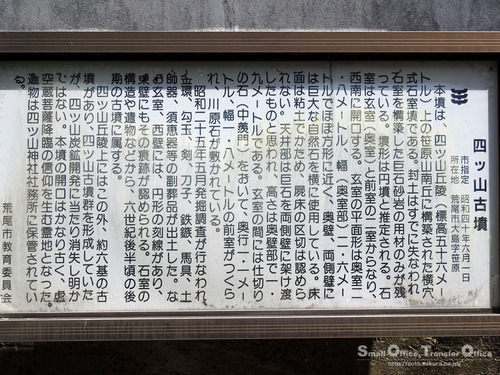 四ッ山古墳
市指定 昭和四十六年六月一日
所在地 荒尾市大島字笹原
本墳は、四ッ山丘陵（標高五十六メー
トル）上の笹原山頂丘に構築された横穴
式石室墳である。封土はすでに失なわれ
石室を構築した巨石砂岩の用材のみが残
っている。墳形は円墳と推定される。石
室は玄室（奥室）と前室の二室からなり、
西南に開口する。玄室の平面形は奥室二
・八メートル、幅（奥室部）二・六メー
トルでほぼ方形に近く、奥壁、両側壁に
は巨大な自然石を横に使用している。床
面は粘土でかため、屍床の区切は認めら
れない。天井部は巨石を両側壁に架け渡
したものと思われ、高さは奥壁部で一・
九メートルである。玄室の間には仕切り
の石（中羨門）をおいて、奥行一・一メー
トル、幅一・八メートルの前室がつくら
れ、川原石が敷かれている。
昭和二十五年五月発掘調査が行なわれ、
金環、勾玉、剣、刀子、鉄鏃、馬具、土
師器、須恵器等の副葬品が出土した。な
お玄室、西壁には、円形の刻線があり、
東壁にもその痕跡が認められる。石室の
構造や遺物などから、六世紀後半頃の後
期の古墳に属する。
四ッ山丘陵上にはこの外、約六基の古
墳があり、四ッ山古墳群を形成していた
が、四ッ山炭鉱開発に当たり消失し明か
ではない。本墳の開口はかなり古く、虚
空蔵菩薩降臨の信仰を生む霊地となった。
遺物は四ッ山神社社務所に保管されてい
る。
荒尾市教育委員会
Small Office, Transfer Office
http://soto.sakura.ne.jp/